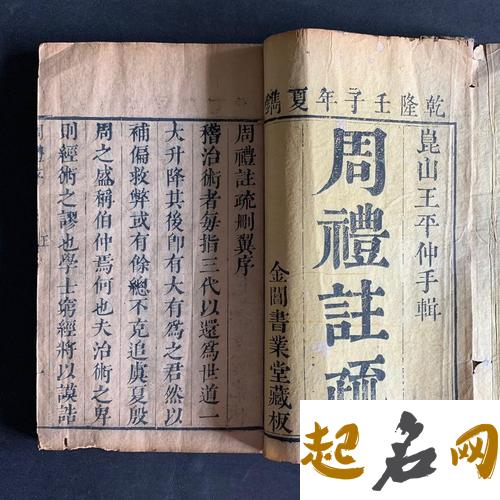 乾隆壬子年夏鐫
崑山王平仲手輯
周禮註疏
金閶書業堂藏板
周禮註疏刪翼序
稽治術者每指三代以還為世道一
大升降其後卽有大有為之君然以
補偏救弊或有餘總不克追虞夏殷
周之盛稱伯仲焉何也夫治術之卑
則經術之謬也學士窮經將以謨誥
起名网